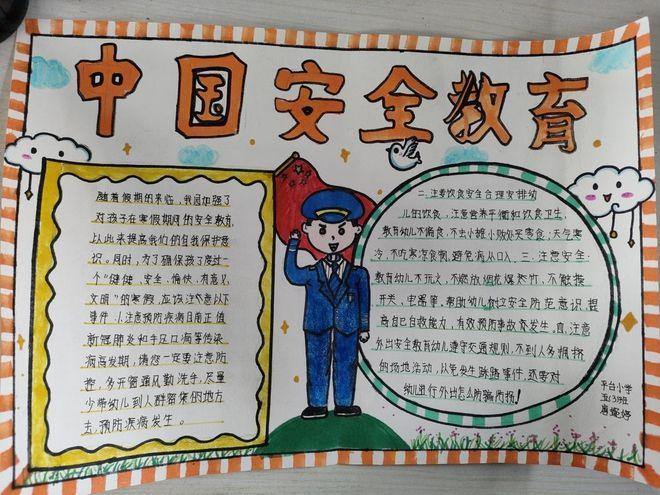 中国安全教育
随着假期的来临，我园加强了
对孩子在寒假期间的安全教育
以此来提高我们的自我保护意
识。同时，为了确保孩子度过一
个“健健、安全、愉快、有意义
文明”的寒假，应该注意以下
事件：1.注意预防疾病目前正值
新冠肺炎和手足口病等传染
病高发期，请您一定要注意防
控，多开窗通风勤洗手，尽量
少带幼儿到人群密集的地方
去，预防疾病发生。
二.注意饮食安全合理安排幼
儿的饮食，注意营养平衡和饮食卫生，
教育幼儿不偏食，不去小摊小贩处买零食；天气寒
冷，不吃寒凉食物，避免病从口入。三.注意安全：
教育幼儿不玩火，不燃放烟花爆竹，不触摸
开关、电器等，帮助幼儿树立安全防范意识，提
高自己自救能力，有效预防事故发生。四.注意
外出安全教育幼儿遵守交通规则，不到人多拥挤
的场地活动，以免发生踩踏事件，还要对
幼儿进行外出怎么防骗防拐！
平台小学
五(3)班